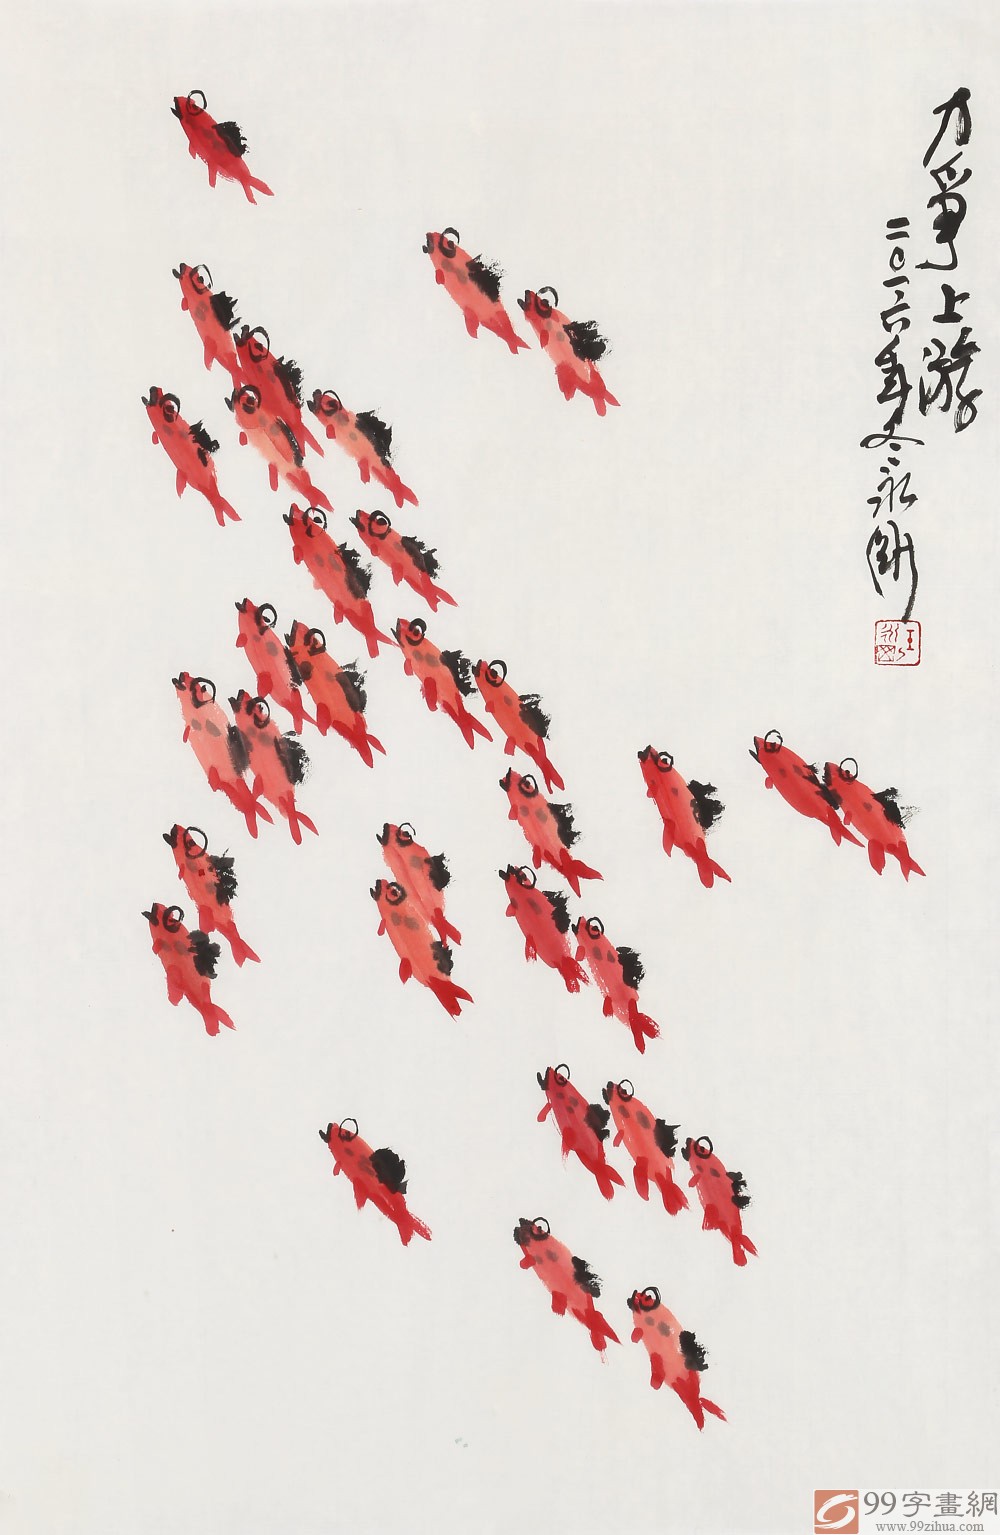 力爭上游
二〇一六年冬永剛
99字畫網
www.99zihua.com